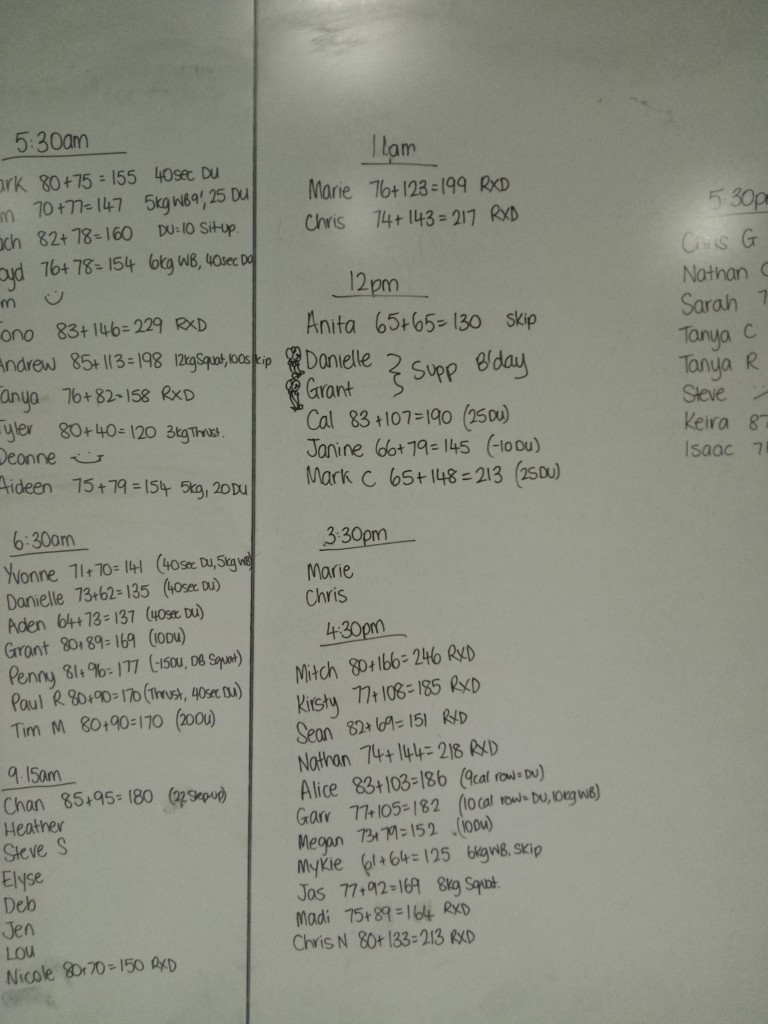 5:30am
ark 80+75=155 40sec DU
m 70+77=147 5kg WB9', 25 DU
ach 82+78=160 DU=10 Situp.
oyd 76+78=154 6kg WB, 40sec DU
m
ono 83+146=229 RXD
Andrew 85+113=198 12kg Squat, 100skip
Tanya 76+82=158 RXD
Tyler 80+40=120 3kg Thrust.
Deanne
Aideen 75+79=154 5kg, 20DU
6:30am
Yvonne 71+70=141 (40sec DU, 5kg WB)
Danielle 73+62=135 (40sec DU)
Aden 64+73=137 (40sec DU)
Grant 80+89=169 (10DU)
Penny 81+96=177 (-15DU, DB Squat)
Paul R 80+90=170 (Thrust, 40sec DU)
Tim M 80+90=170 (20DU)
9.15am
Chan 85+95=180 (22 Stepup)
Heather
Steve S
Elyse
Deb
Jen
Lou
Nicole 80+70=150 RXD
11am
Marie 76+123=199 RXD
Chris 74+143=217 RXD
12pm
Anita 65+65=130 Skip
Danielle } Supp B'day
Grant
Cal 83+107=190 (25DU)
Janine 66+79=145 (-10DU)
Mark C 65+148=213 (25DU)
3:30pm
Marie
Chris
4:30pm
Mitch 80+166=246 RXD
Kirsty 77+108=185 RXD
Sean 82+69=151 RXD
Nathan 74+144=218 RXD
Alice 83+103=186 (9cal row=DU)
Garr 77+105=182 (10cal row=DU, 10kg WB)
Megan 73+79=152 (10DU)
Mykie 61+64=125 6kg WB, Skip
Jas 77+92=169 8kg Squat.
Madi 75+89=164 RXD
Chris N 80+133=213 RXD
5:30p
Chris G
Nathan
Sarah 7
Tanya C
Tanya R
Steve
Keira 87
Isaac 7